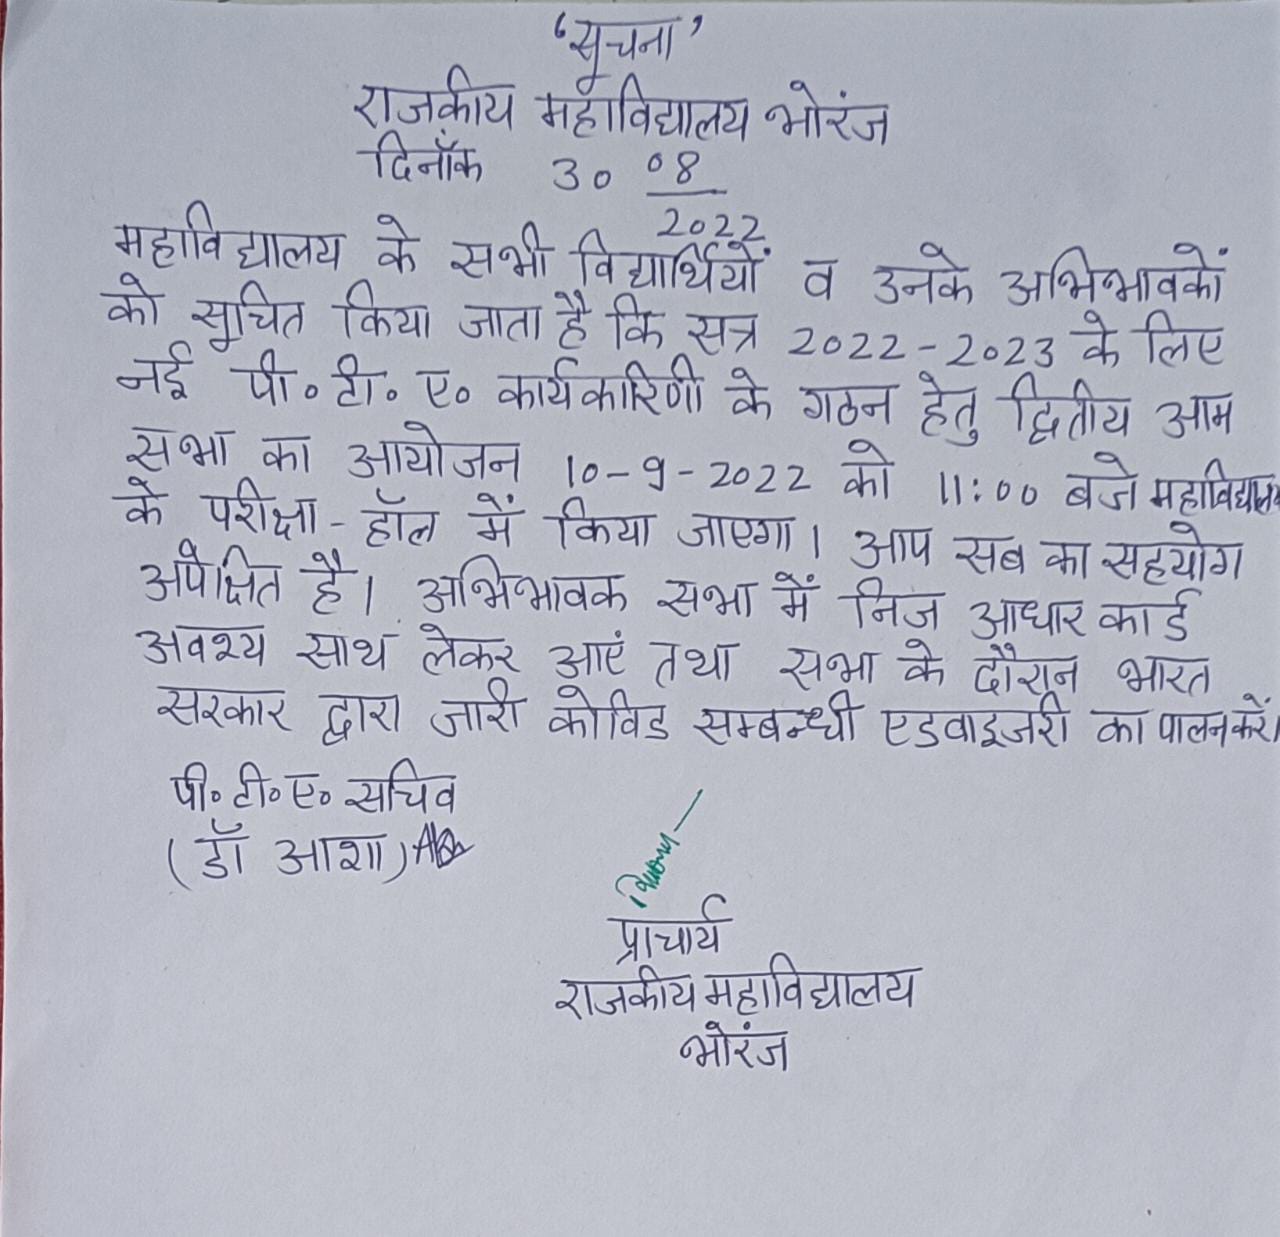 ‘सूचना’
राजकीय महाविद्यालय भोरंज
दिनाँक 30 08
2022
महाविद्यालय के सभी विद्यार्थियों व उनके अभिभावकों
को सूचित किया जाता है कि सत्र 2022-2023 के लिए
नई पी० टी० ए० कार्यकारिणी के गठन हेतु द्वितीय आम
सभा का आयोजन 10-9-2022 को 11:00 बजे महाविद्यालय
के परीक्षा-हॉल में किया जाएगा। आप सब का सहयोग
अपेक्षित है। अभिभावक सभा में निज आधार कार्ड
अवश्य साथ लेकर आएं तथा सभा के दौरान भारत
सरकार द्वारा जारी कोविड सम्बन्धी एडवाइजरी का पालन करें।
पी० टी० ए० सचिव
(डॉ आशा)
प्राचार्य
राजकीय महाविद्यालय
भोरंज